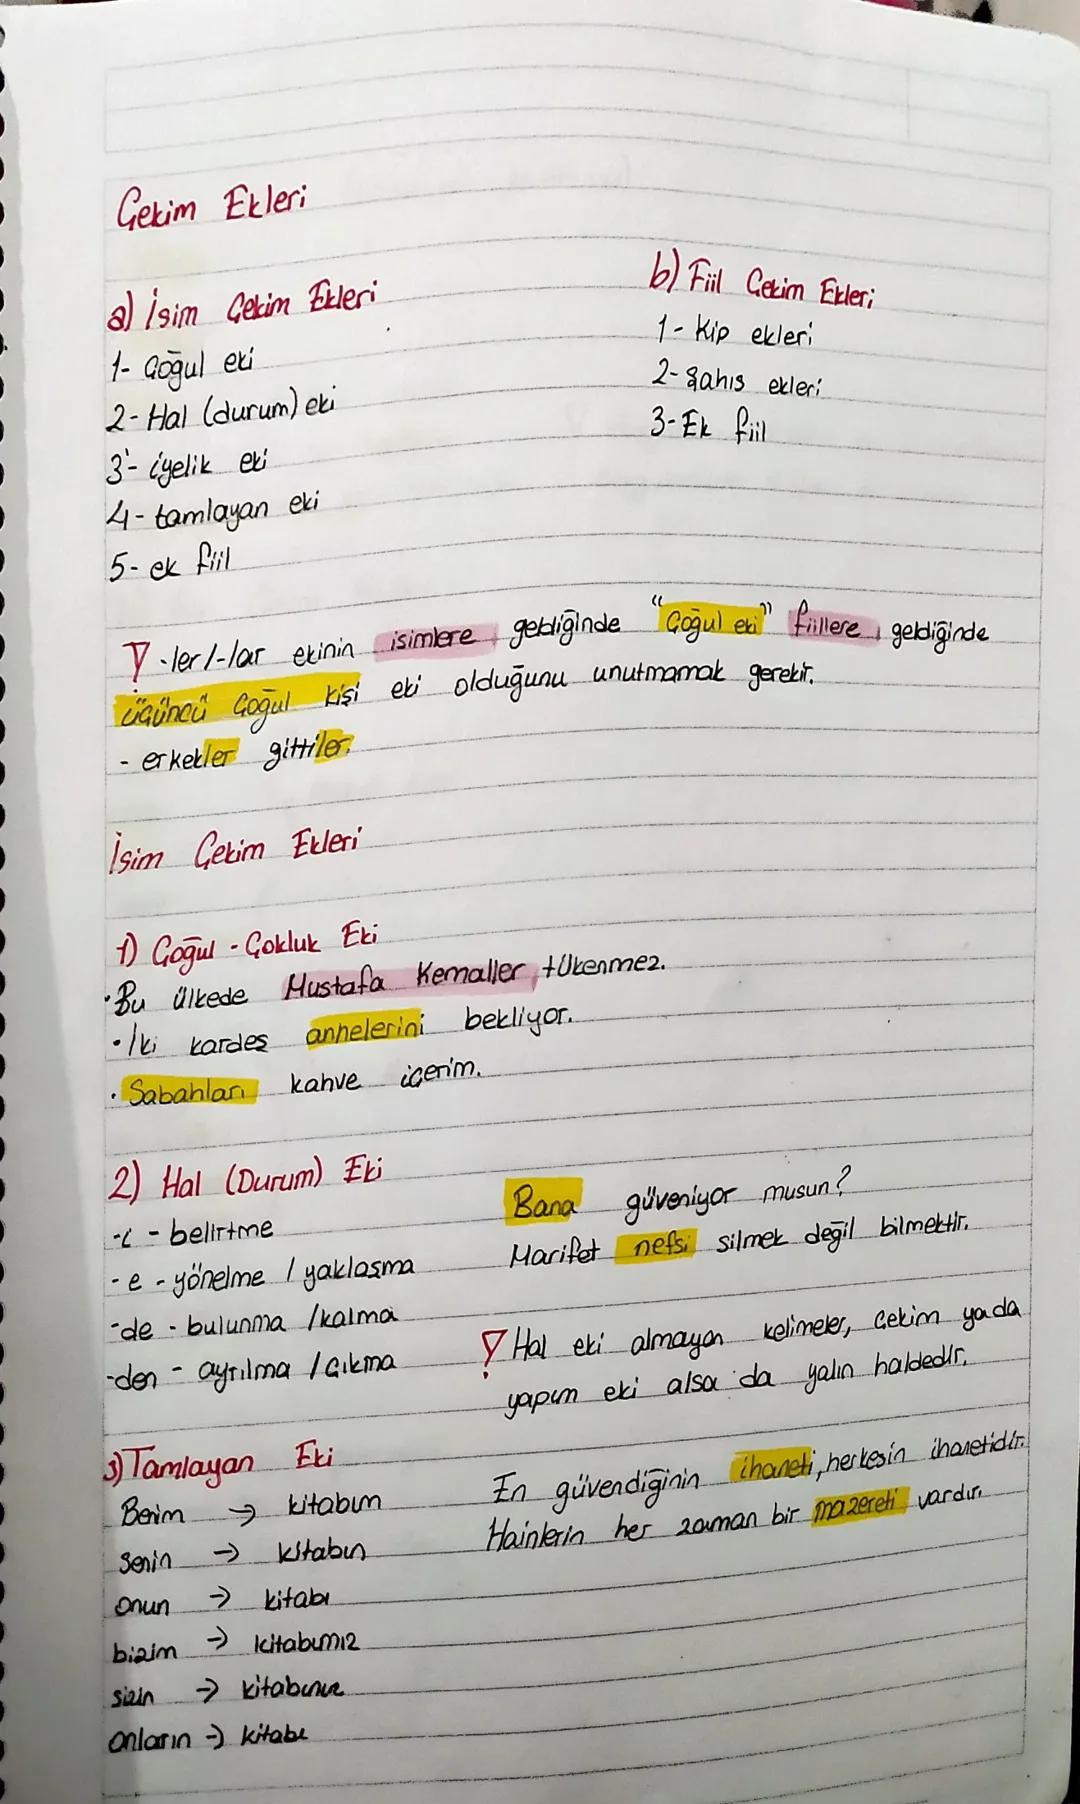 Çekim Ekleri
a) İsim Çekim Ekleri
1- Çoğul eki
2- Hal (durum) eki
3- iyelik eki
4- tamlayan eki
5- ek fiil
b) Fiil Çekim Ekleri
1- Kip ekleri
2- Şahıs ekleri
3- Ek fiil
-ler/-lar ekinin isimlere geldiğinde "Çoğul eki" fiillere geldiğinde
üçüncü Çoğul kişi eki olduğunu unutmamak gerekir.
- erkekler gittiler.
İsim Çekim Ekleri
1) Çoğul - Çokluk Eki
• Bu ülkede Mustafa Kemaller tükenmez.
• İki kardeş annelerini bekliyor.
• Sabahları kahve içerim.
2) Hal (Durum) Eki
-i - belirtme
-e - yönelme / yaklaşma
-de - bulunma /kalma
-den - ayrılma / Çıkma
Bana güveniyor musun?
Marifet nefsi silmek değil bilmektir.
Hal eki almayan kelimeler, çekim yada
yapım eki alsa da yalın haldedir.
3) Tamlayan Eki
Benim → kitabım
senin → kitabın
onun → kitabı
bizim → kitabımız
sizin → kitabınız
onların → kitabı
En güvendiğinin ihaneti, herkesin ihanetidir.
Hainlerin her zaman bir mazereti vardır.